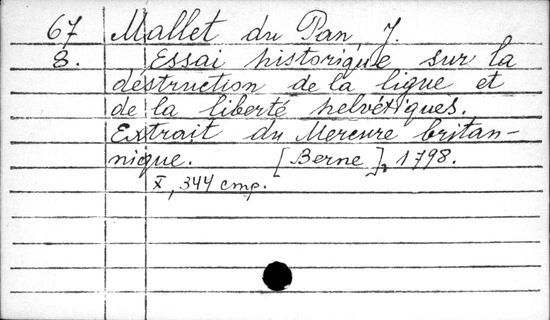 67 Mallet du Pan, J.
8. Essai historique sur la
déstruction de la ligue et
de la liberté helvétiques.
Extrait du Mercure britan-
nique. [Berne], 1798.
X, 344 стр.